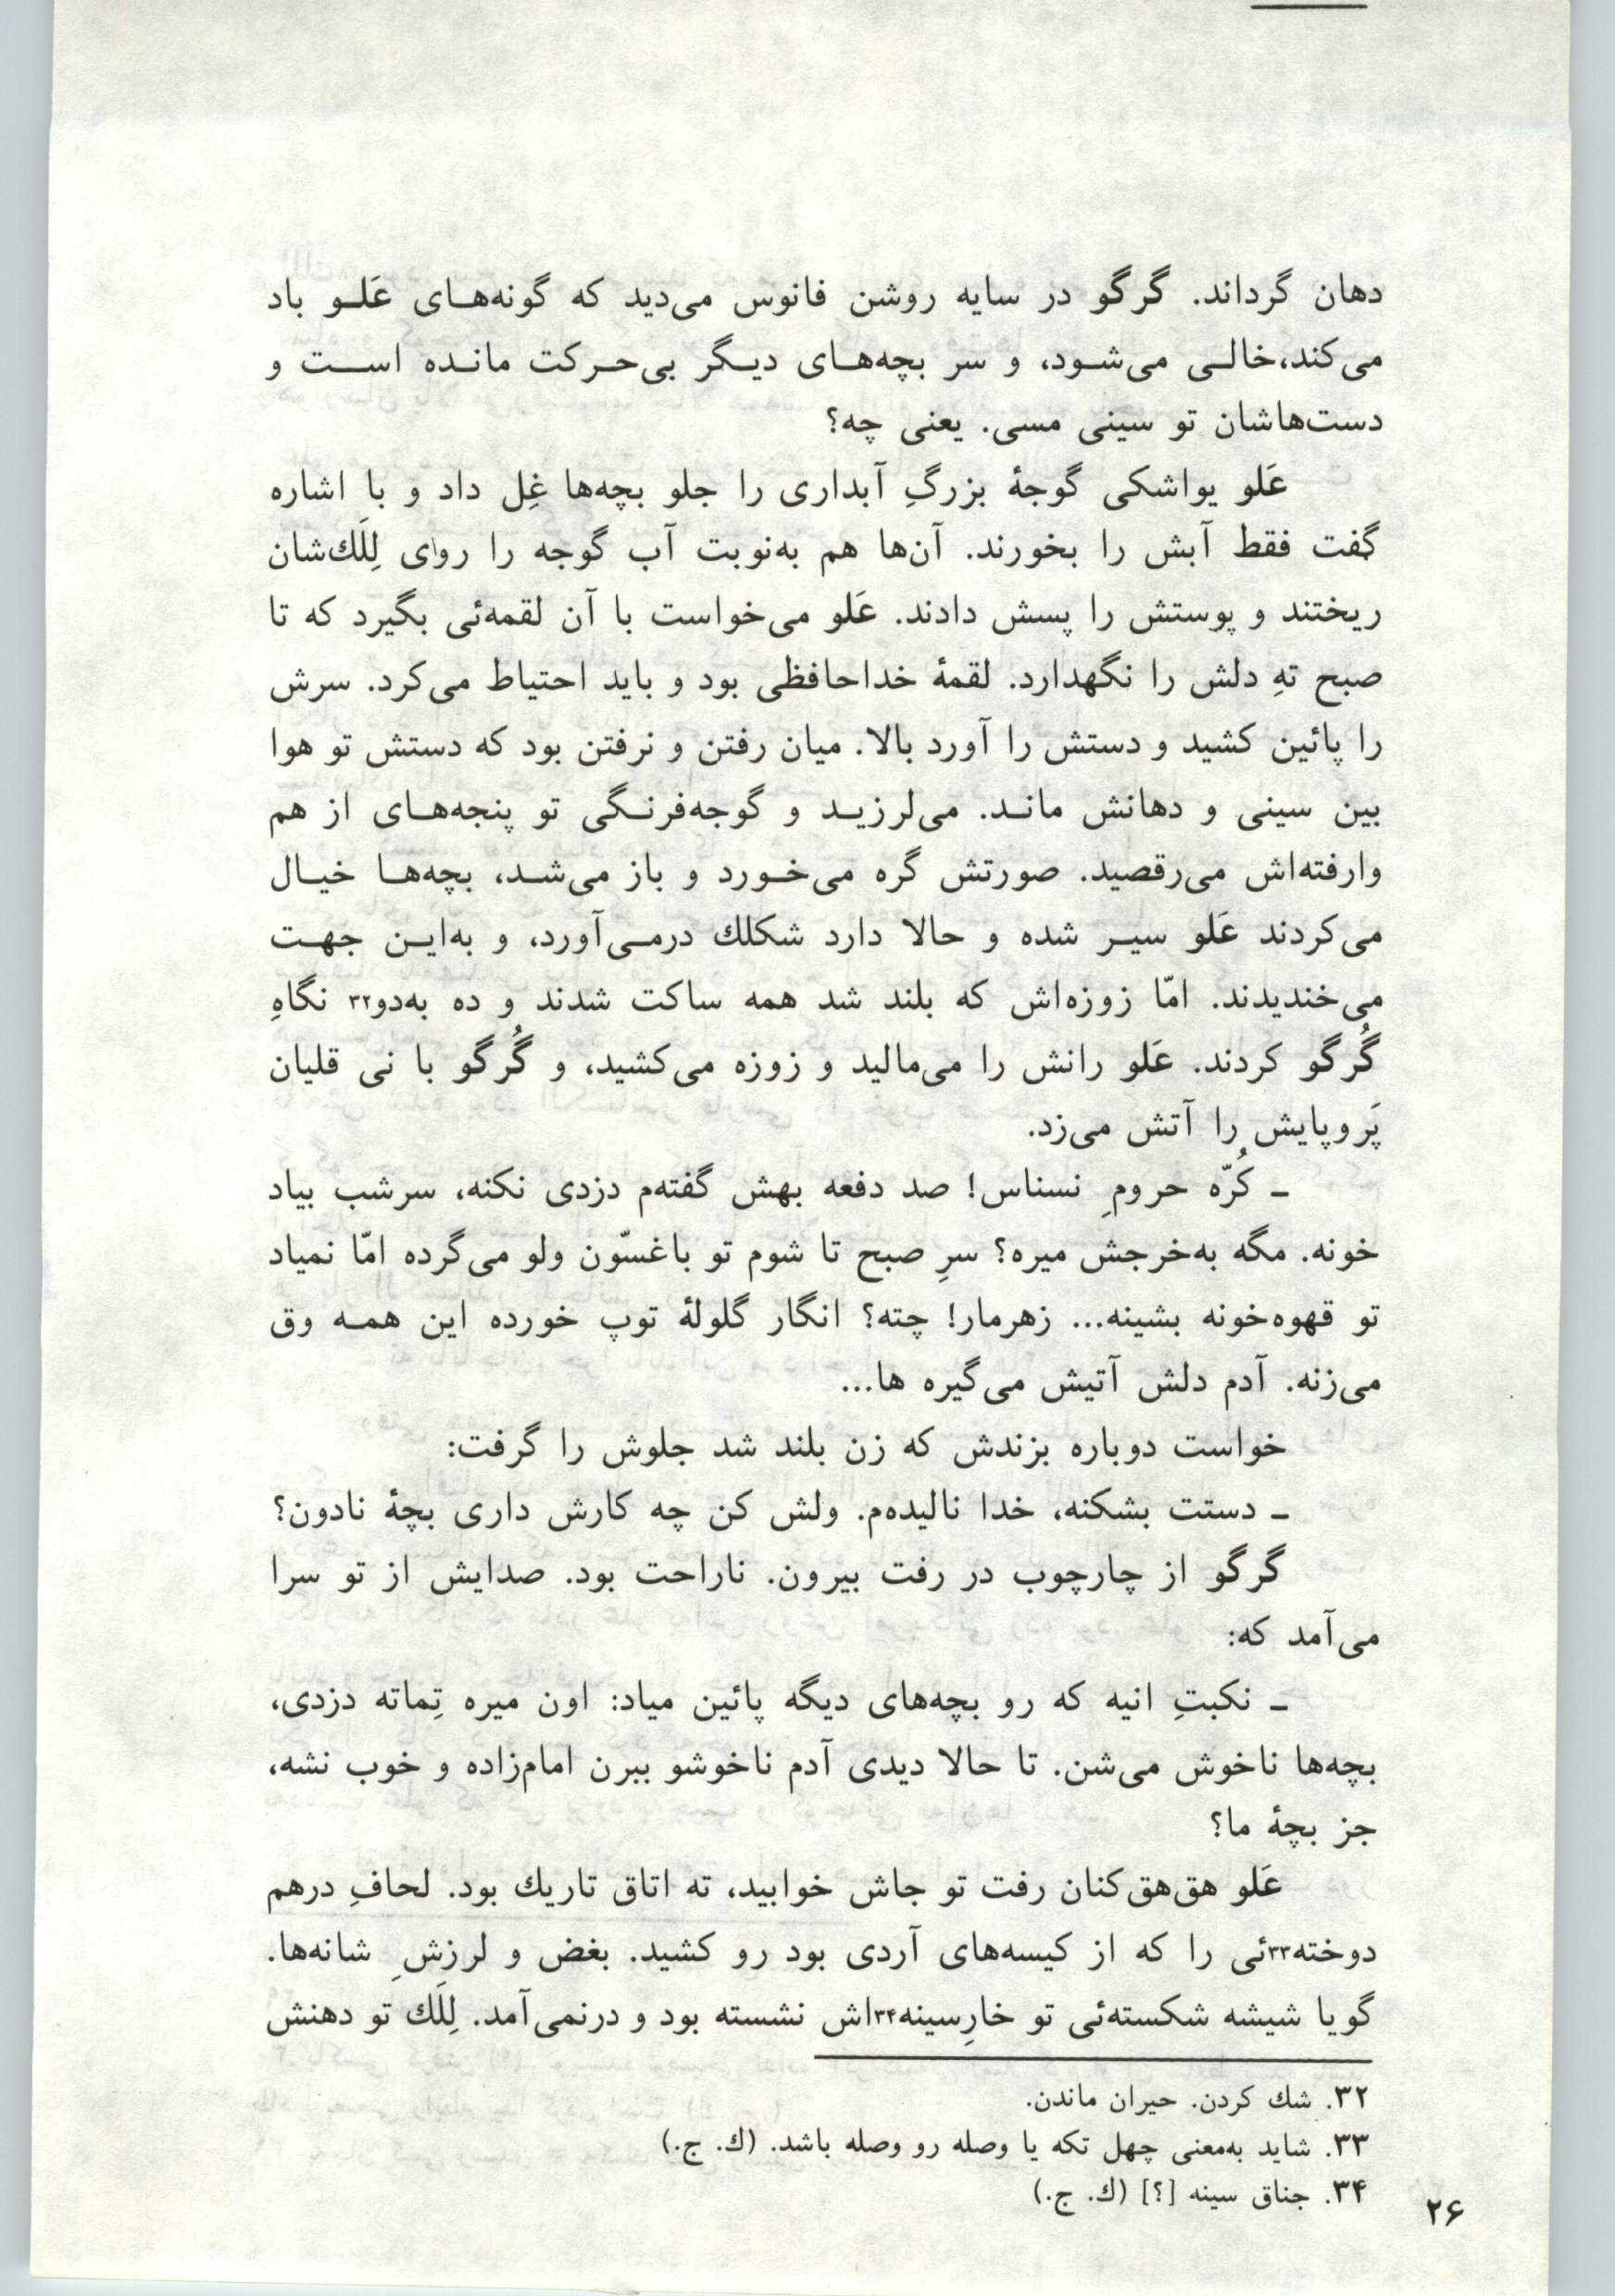 دهان گرداند. گرگو در سایه روشن فانوس می‌دید که گونه‌های عَلو باد
می‌کند،خالی می‌شود، و سر بچه‌های دیگر بی‌حرکت مانده است و
دست‌هاشان تو سینی مسی. یعنی چه؟
عَلو یواشکی گوجهٔ بزرگِ آبداری را جلو بچه‌ها غِل داد و با اشاره
گفت فقط آبش را بخورند. آن‌ها هم به‌نوبت آب گوجه را روای لِلَك‌شان
ریختند و پوستش را پسش دادند. عَلو می‌خواست با آن لقمه‌ئی بگیرد که تا
صبح تهِ دلش را نگهدارد. لقمهٔ خداحافظی بود و باید احتیاط می‌کرد. سرش
را پائین کشید و دستش را آورد بالا. میان رفتن و نرفتن بود که دستش تو هوا
بین سینی و دهانش ماند. می‌لرزید و گوجه‌فرنگی تو پنجه‌های از هم
وارفته‌اش می‌رقصید. صورتش گره می‌خورد و باز می‌شد، بچه‌ها خیال
می‌کردند عَلو سیر شده و حالا دارد شکلك درمی‌آورد، و به‌این جهت
می‌خندیدند. امّا زوزه‌اش که بلند شد همه ساکت شدند و ده به‌دو۳۲ نگاهِ
گُرگو کردند. عَلو رانش را می‌مالید و زوزه می‌کشید، و گُرگو با نی قلیان
پَروپایش را آتش می‌زد.
ـ کُرّه حرومِ نسناس! صد دفعه بهش گفته‌م دزدی نکنه، سرشب بیاد
خونه. مگه به‌خرجش میره؟ سرِ صبح تا شوم تو باغسّون ولو می‌گرده امّا نمیاد
تو قهوه‌خونه بشینه... زهرمار! چته؟ انگار گلولهٔ توپ خورده این همه وق
می‌زنه. آدم دلش آتیش می‌گیره ها...
خواست دوباره بزندش که زن بلند شد جلوش را گرفت:
ـ دستت بشکنه، خدا نالیده‌م. ولش کن چه کارش داری بچهٔ نادون؟
گرگو از چارچوب در رفت بیرون. ناراحت بود. صدایش از تو سرا
می‌آمد که:
ـ نکبتِ انیه که رو بچه‌های دیگه پائین میاد: اون میره تِماته دزدی،
بچه‌ها ناخوش می‌شن. تا حالا دیدی آدم ناخوشو ببرن امام‌زاده و خوب نشه،
جز بچهٔ ما؟
عَلو هق‌هق‌کنان رفت تو جاش خوابید، ته اتاق تاریك بود. لحافِ درهم
دوخته۳۳ئی را که از کیسه‌های آردی بود رو کشید. بغض و لرزشِ شانه‌ها.
گویا شیشه شکسته‌ئی تو خارِسینه۳۴اش نشسته بود و درنمی‌آمد. لِلَك تو دهنش
۳۲. شك کردن. حیران ماندن.
۳۳. شاید به‌معنی چهل تکه یا وصله رو وصله باشد. (ك. ج.)
۳۴. جناق سینه [؟] (ك. ج.)
۲۶